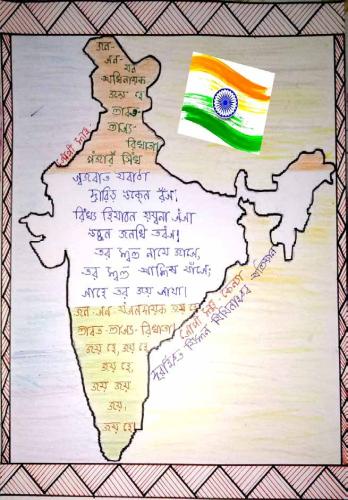 জন-
গন-
মন
অধিনায়ক
জয় হে
ভারত-
ভাগ্য-
বিধাতা
সিন্ধু
গুজরাত মারাঠা
দ্রাবিড় উৎকল বঙ্গ।
বিন্ধ্য হিমাচল যমুনা গঙ্গা
জলধি তরঙ্গ।
তব শুভ নামে জাগে,
তব শুভ আশিষ মাগে,
গাহে তব জয় গাথা।
জন-গন-মঙ্গলদায়ক জয় হে
ভারত-ভাগ্য-বিধাতা
জয় হে, জয় হে
জয় হে,
জয় জয়
জয়,
জয় হে।